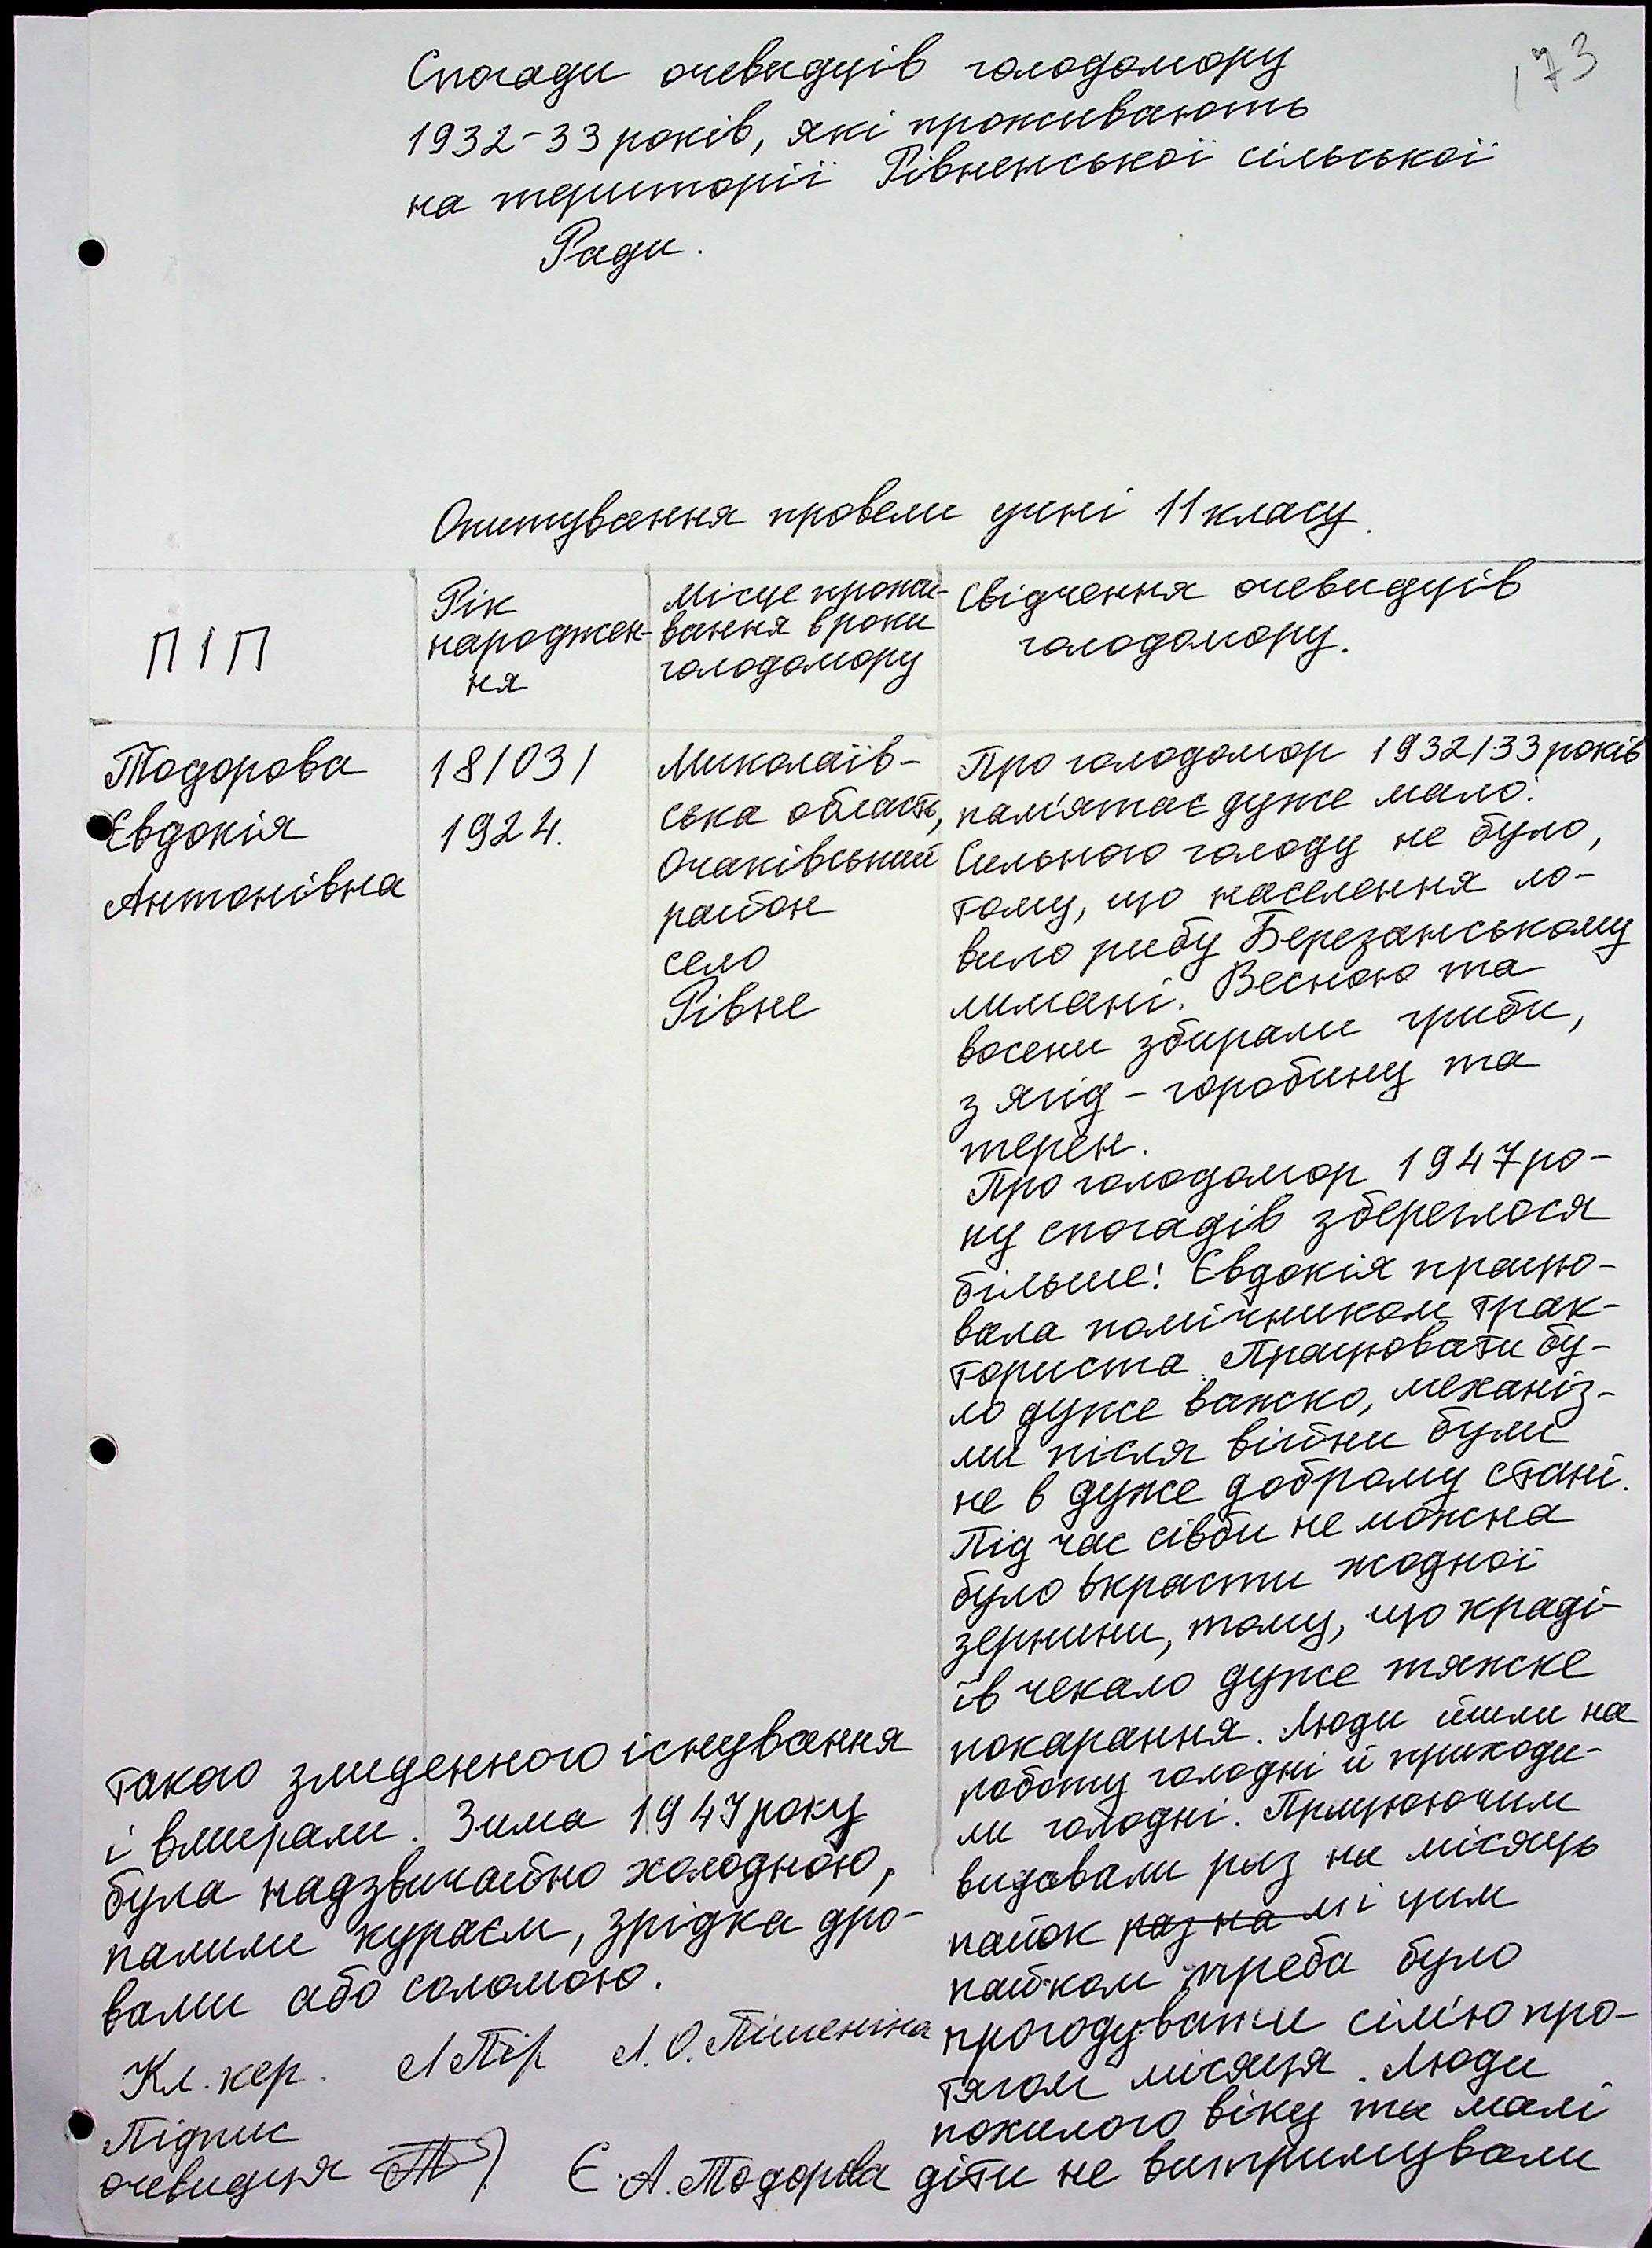 173
Спогади очевидців голодомору
1932-33 років, які проживають
на території Рівненської сільської
Ради.
Опитування провели учні 11 класу.
ПІП
Рік
народжен-
ня
Місце прожи-
вання в роки
голодомору
Свідчення очевидців
голодомору.
Тодорова
Євдокія
Антонівна
18/03/
1924.
Миколаїв-
ська область,
Очаківський
район
село
Рівне
Про голодомор 1932/33 років
пам'ятає дуже мало.
Сильного голоду не було,
тому, що населення ло-
вило рибу Березанському
лимані. Весною та
восени збирали гриби,
з ягід - горобину та
терен.
Про голодомор 1947 ро-
ку спогадів збереглося
більше: Євдокія працю-
вала помічником трак-
ториста. Працювати бу-
ло дуже важко, механіз-
ми після війни були
не в дуже доброму стані.
Під час сівби не можна
було вкрасти жодної
зернини, тому, що краді-
їв чекало дуже тяжке
покарання. Люди йшли на
роботу голодні й приходи-
ли голодні. Працюючим
видавали раз на місяць
пайок раз на мі цим
пайком треба було
прогодувати сім'ю про-
тягом місяця. Люди
похилого віку та малі
діти не витримували
такого злиденного існування
і вмирали. Зима 1947 року
була надзвичайно холодною,
палили кураєм, зрідка дро-
вами або соломою.
Кл. кер. Л.О. Пішеніна
Підпис
очевидця Є.А. Тодорова